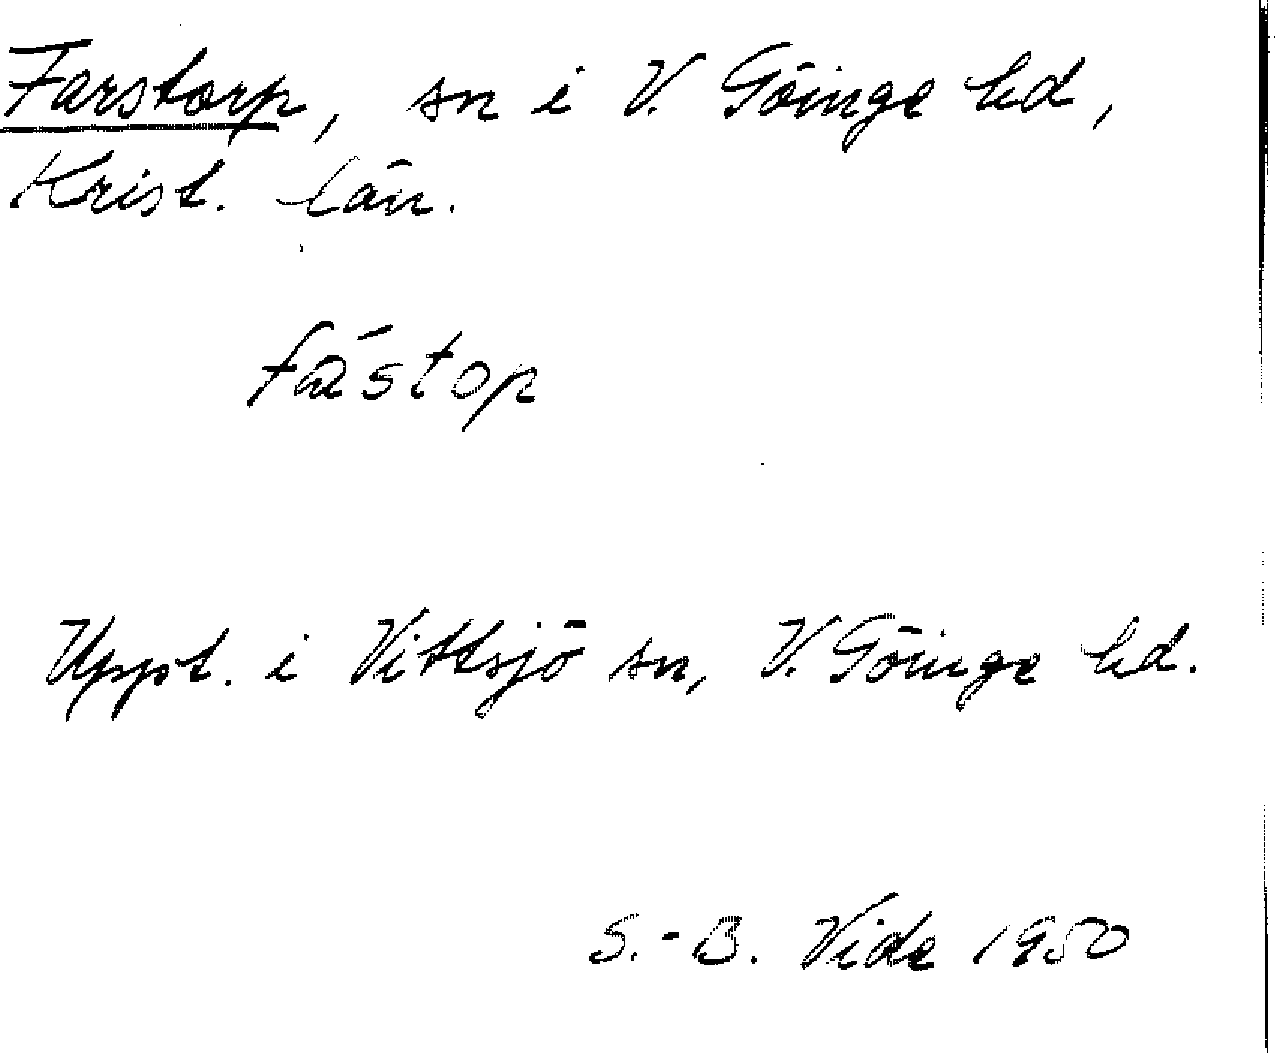 Farstorp, sn i V. Göinge hd,
Krist. län.
fás̀top
Uppt. i Vittsjö sn, V. Göinge hd.
S.-B. Vide 1950